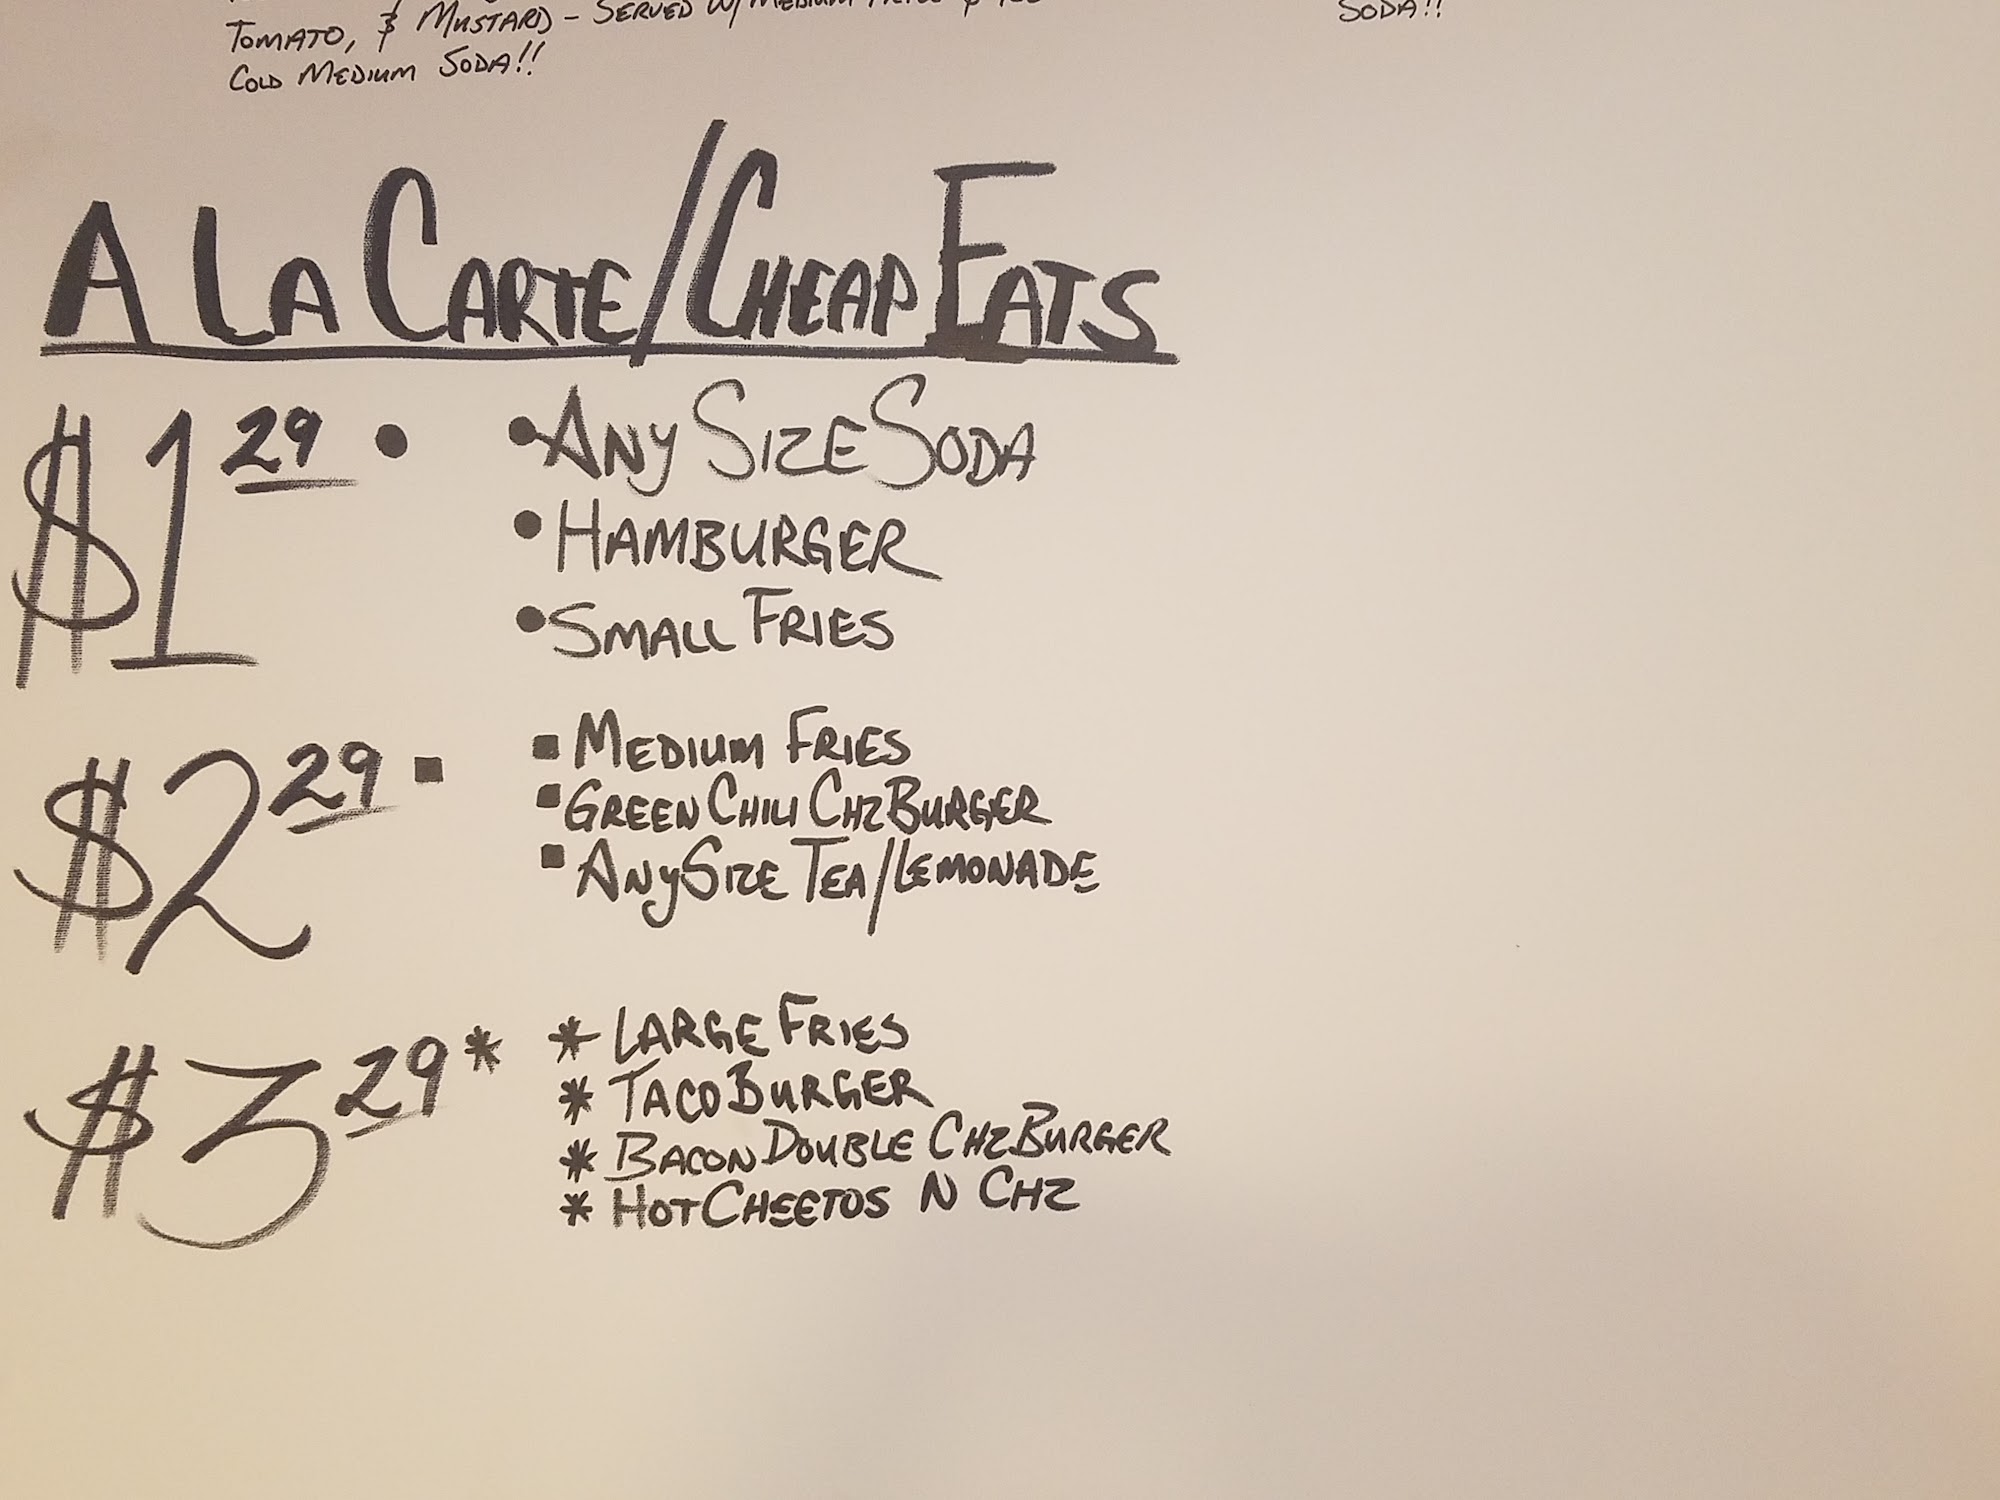 TOMATO, & MUSTARD – SERVED W/ MEDIUM
SODA!!
COLD MEDIUM SODA!!
A LA CARTE/CHEAP EATS
$1 29 •
• ANY SIZE SODA
• HAMBURGER
• SMALL FRIES
$2 29 ▪
▪ MEDIUM FRIES
▪ GREEN CHILI CHZBURGER
▪ ANY SIZE TEA/LEMONADE
$3 29 *
* LARGE FRIES
* TACO BURGER
* BACON DOUBLE CHZBURGER
* HOT CHEETOS N CHZ